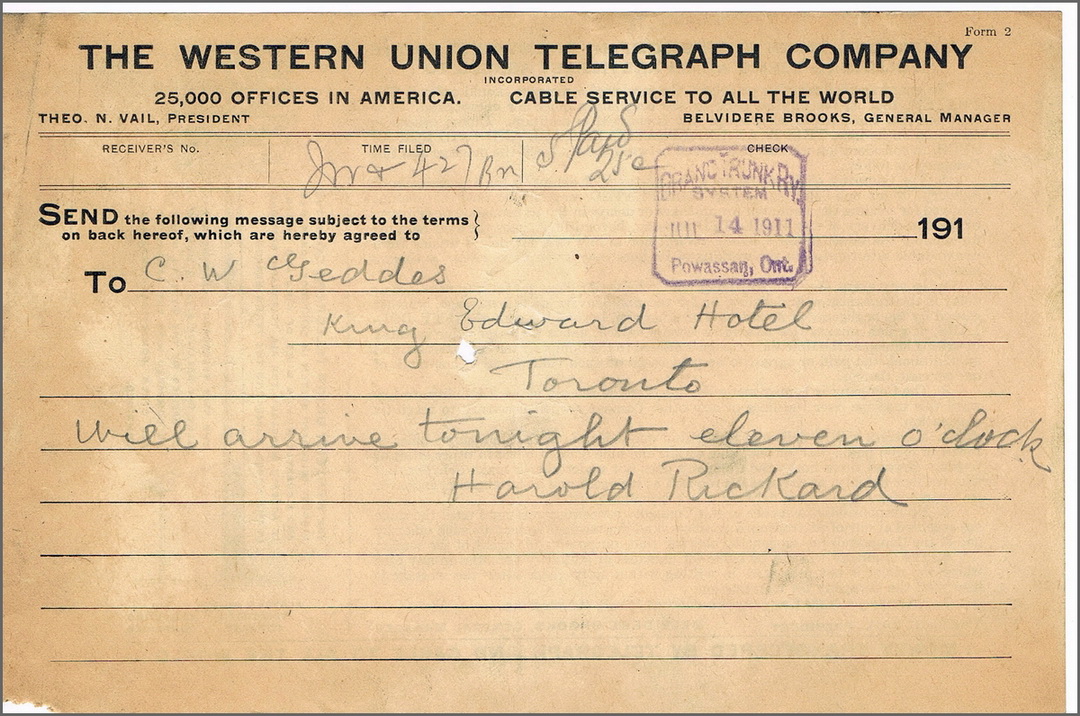 Form 2
THE WESTERN UNION TELEGRAPH COMPANY
INCORPORATED
25,000 OFFICES IN AMERICA. CABLE SERVICE TO ALL THE WORLD
THEO. N. VAIL, PRESIDENT BELVIDERE BROOKS, GENERAL MANAGER
RECEIVER'S No. TIME FILED CHECK
427
5 Paid
25c
GRAND TRUNK RY.
SYSTEM
JUL 14 1911
Powassan, Ont.
SEND the following message subject to the terms
on back hereof, which are hereby agreed to
191
To C. W Geddes
King Edward Hotel
Toronto
Will arrive tonight eleven o'clock
Harold Rickard